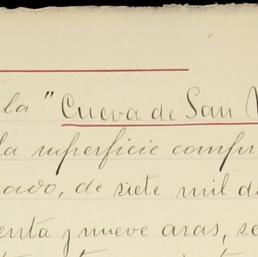 la "Cueva de San
la superficie compr
ado, de siete mil d
enta y nueve aras, se